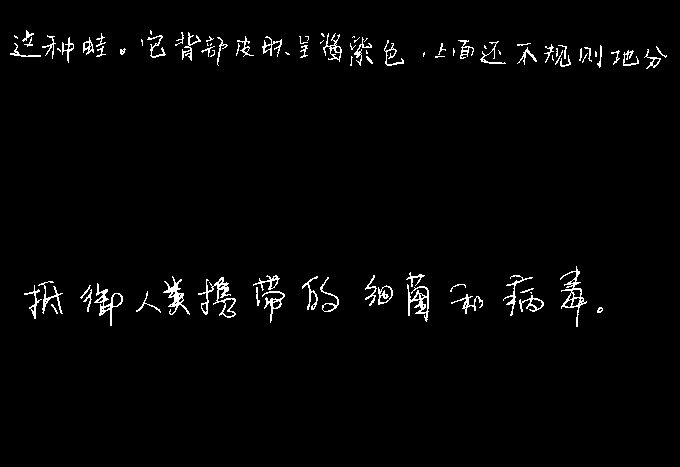 这种蛙。它背部皮肤呈酱紫色,上面还不规则地分
抵御人类携带的细菌和病毒。